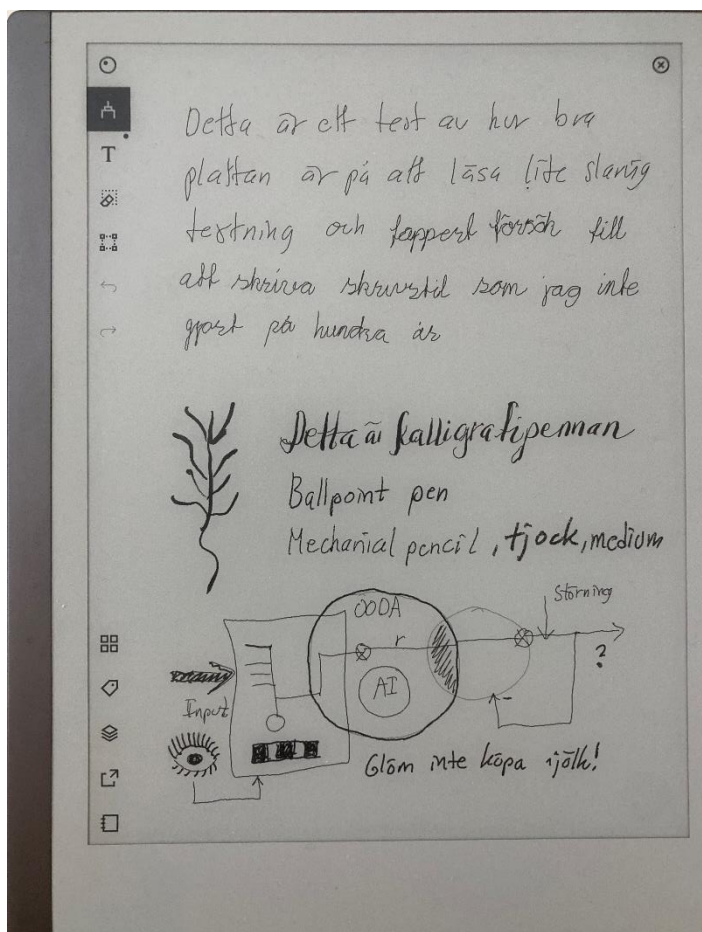 Detta är ett test av hur bra
plattan är på att läsa lite slarvig
textning och tappert försök till
att skriva skrivstil som jag inte
gjort på hundra år
Detta är kalligrafipennan
Ballpoint pen
Mechanical pencil, tjock, medium
Störning
OODA
r
?
AI
Input
-
Glöm inte köpa mjölk!
T